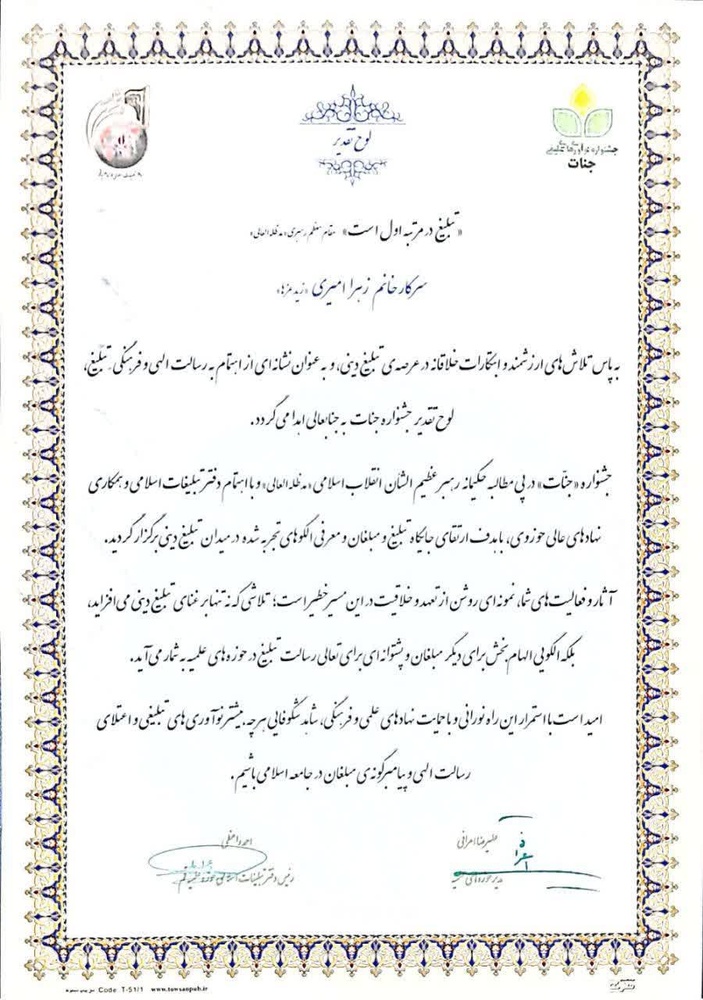 جشنواره نوآوری‌های تبلیغی
جنات
لوح تقدیر
«تبلیغ در مرتبه اول است» مقام معظم رهبری «مدظله‌العالی»
سرکار خانم زهرا امیری «زید عزها»
به پاس تلاش‌های ارزشمند و ابتکارات خلاقانه در عرصه‌ی تبلیغ دینی، و به عنوان نشانه‌ای از اهتمام به رسالت الهی و فرهنگی تبلیغ،
لوح تقدیر جشنواره جنات به جنابعالی اهدا می‌گردد.
جشنواره «جنّات» در پی مطالبه حکیمانه رهبر عظیم الشان انقلاب اسلامی «مدظله‌العالی» و با اهتمام دفتر تبلیغات اسلامی و همکاری
نهادهای عالی حوزوی، با هدف ارتقای جایگاه تبلیغ و مبلغان و معرفی الگوهای تجربه شده در میدان تبلیغ دینی برگزار گردید.
آثار و فعالیت‌های شما، نمونه‌ای روشن از تعهد و خلاقیت در این مسیر خطیر است؛ تلاشی که نه تنها بر غنای تبلیغ دینی می‌افزاید،
بلکه الگویی الهام‌بخش برای دیگر مبلغان و پشتوانه‌ای برای تعالی رسالت تبلیغ در حوزه‌های علمیه به شمار می‌آید.
امید است با استمرار این راه نورانی و با حمایت نهادهای علمی و فرهنگی، شاهد شکوفایی هرچه بیشتر نوآوری‌های تبلیغی و اعتلای
رسالت الهی و پیامبرگونه‌ی مبلغان در جامعه اسلامی باشیم.
علیرضا اعرافی
مدیر حوزه‌های علمیه
احمد واعظی
رئیس دفتر تبلیغات اسلامی حوزه علمیه قم
Code T-51/1 www.towsanpub.ir